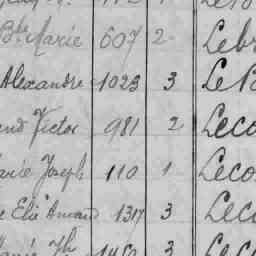 Bte Marie 607 2 Leb
Alexandre 1023 3 Le B
and Victor 981 2 Leco
arie Joseph 110 1 Leco
e Elie Amand 1317 3 Leco
Jh 3 Le C